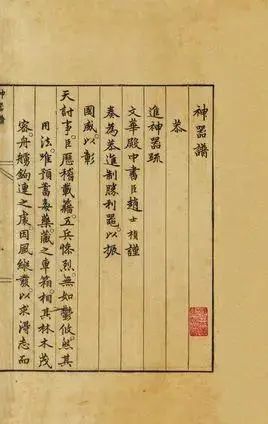 神器譜
恭
進神器疏
文華殿中書臣趙士禎謹
奏為恭進制勝利器。以振
國威。以彰
天討事。臣歷稽載籍。五兵慘烈。無如鬱攸。然其
用法。雖預蓄藥。藏之車箱。相其林木茂
密。舟艫鈎連之處。因風縱發。以求得志。而
神器譜